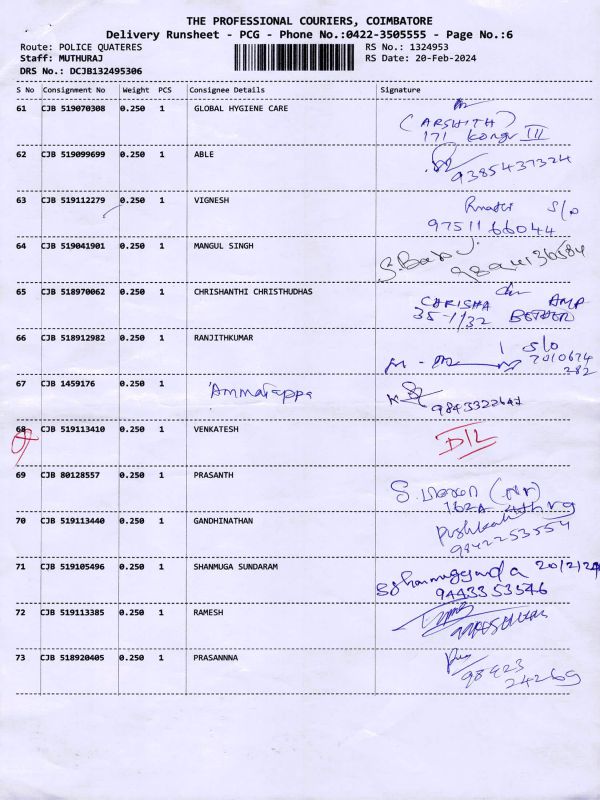 THE PROFESSIONAL COURIERS, COIMBATORE
Delivery Runsheet - PCG - Phone No.:0422-3505555 - Page No.:6
Route: POLICE QUATERES RS No.: 1324953
Staff: MUTHURAJ RS Date: 20-Feb-2024
DRS No.: DCJB132495306
S No Consignment No Weight PCS Consignee Details Signature
61 CJB 519070308 0.250 1 GLOBAL HYGIENE CARE
(ARSHITH)
171 kongu III
62 CJB 519099699 0.250 1 ABLE
9385437324
63 CJB 519112279 0.250 1 VIGNESH
S/o
9751166044
64 CJB 519041901 0.250 1 MANGUL SINGH
S. Babu
65 CJB 518970062 0.250 1 CHRISHANTHI CHRISTHUDHAS
CARISHA
35-1/32
66 CJB 518912982 0.250 1 RANJITHKUMAR
S/o
7010674
282
67 CJB 1459176 0.250 1 Ammaiappa
9843322647
68 CJB 519113410 0.250 1 VENKATESH
D/L
69 CJB 80128557 0.250 1 PRASANTH
162A
70 CJB 519113440 0.250 1 GANDHINATHAN
9842253554
71 CJB 519105496 0.250 1 SHANMUGA SUNDARAM
20/2/24
9443353546
72 CJB 519113385 0.250 1 RAMESH
73 CJB 518920405 0.250 1 PRASANNNA
98423
24269